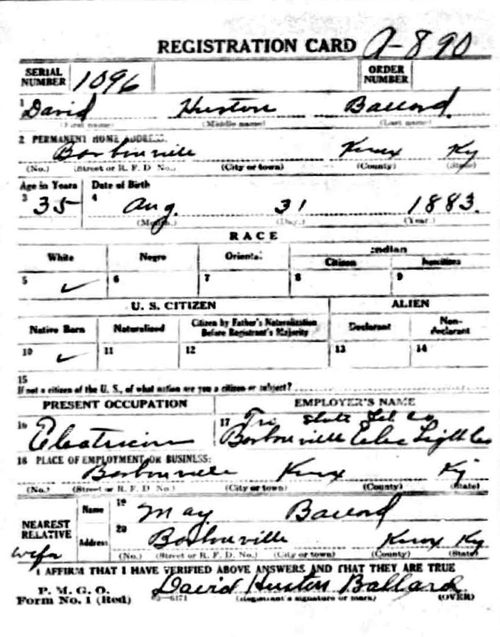 REGISTRATION CARD A-890
SERIAL NUMBER 1096 ORDER NUMBER
1 David Huston Ballord
(First name) (Middle name) (Last name)
2 PERMANENT HOME ADDRESS:
Borbonville Knox Ky
(No.) (Street or R. F. D. No.) (City or town) (County) (State)
Age in Years Date of Birth
3 35 4 Aug. 31 1883.
(Month.) (Day.) (Year.)
RACE
White Negro Oriental Indian
Citizen Noncitizen
5 ✓ 6 7 8 9
U. S. CITIZEN ALIEN
Native Born Naturalized Citizen by Father's Naturalization Before Registrant's Majority Declarant Non-declarant
10 ✓ 11 12 13 14
15
If not a citizen of the U. S., of what nation are you a citizen or subject?
PRESENT OCCUPATION EMPLOYER'S NAME
16 Electrician 17 Tri State Tel Co
Borbonville Elec Light Co
18 PLACE OF EMPLOYMENT OR BUSINESS:
Borbonville Knox Ky
(No.) (Street or R. F. D. No.) (City or town) (County) (State)
NEAREST RELATIVE Name 19 May Ballord
wife Address 20 Borbonville Knox Ky
(No.) (Street or R. F. D. No.) (City or town) (County) (State)
I AFFIRM THAT I HAVE VERIFIED ABOVE ANSWERS AND THAT THEY ARE TRUE
P. M. G. O.
Form No. 1 (Red) 3-6171 David Huston Ballard
(Registrant's signature or mark) (OVER)